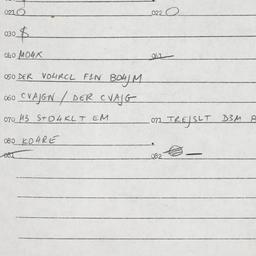 021 O 022 O
030 $
040 MO4K 041
050 DER VO4RCL F1N BO4JM
060 CVAJGN / DER CVAJG
070 H3 STO4KLT EM 071 TREJSLT D3M
080 KO4RE
081 082